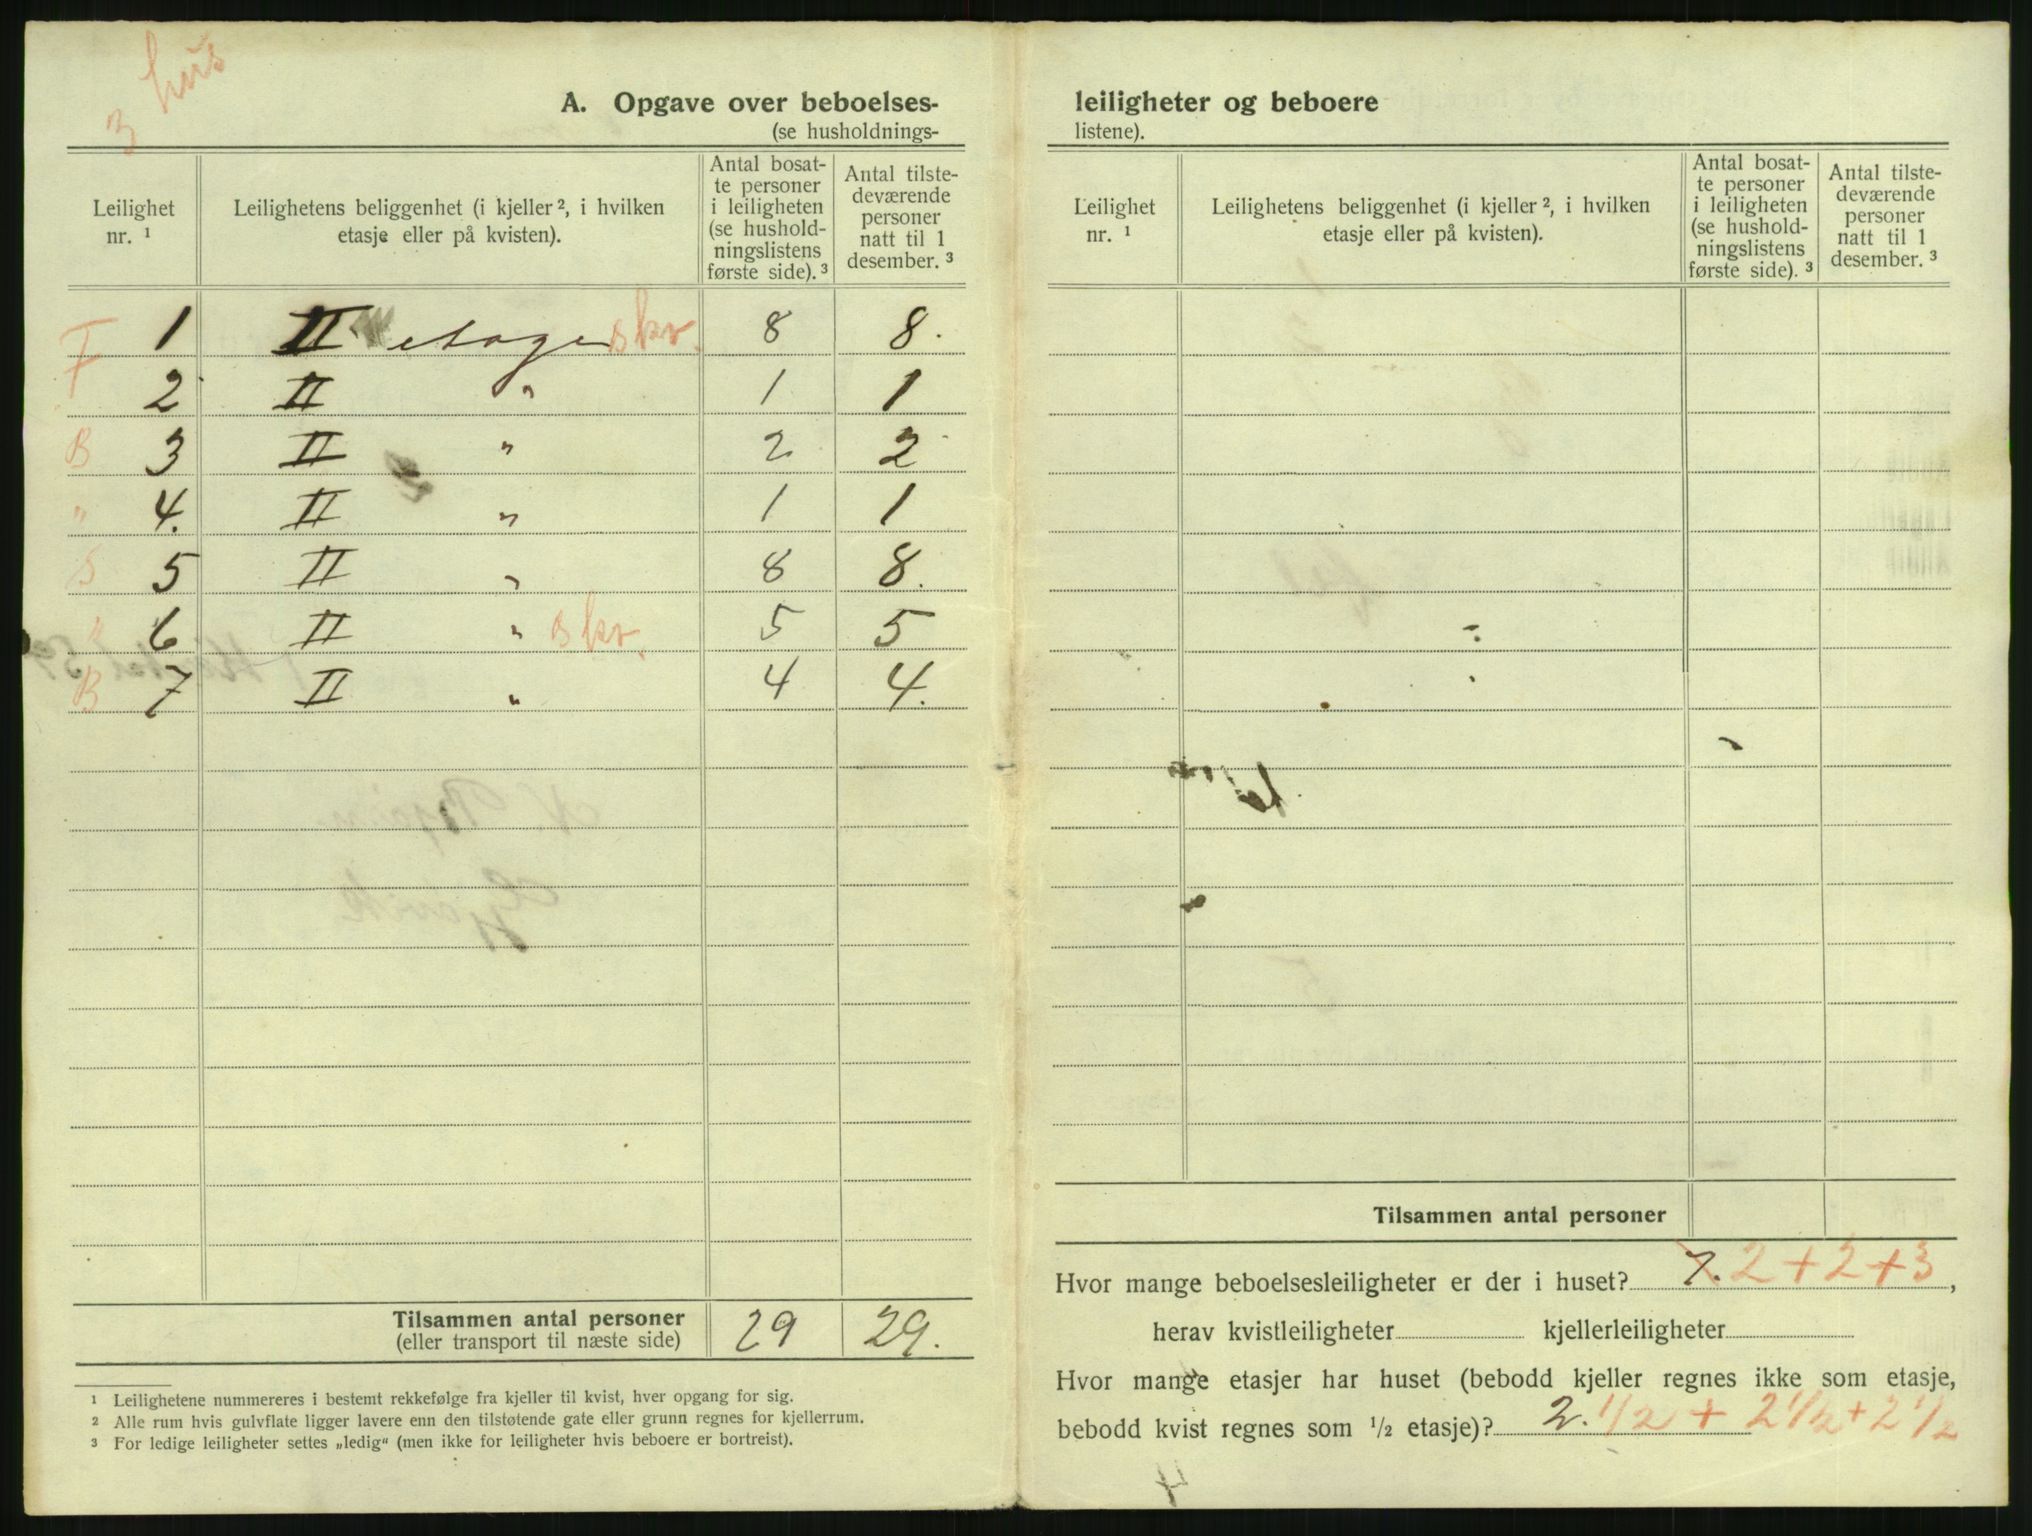 3 hus
A. Opgave over beboelses-
(se husholdnings-
Leilighet nr. ¹
Leilighetens beliggenhet (i kjeller ², i hvilken etasje eller på kvisten).
Antal bosatte personer i leiligheten (se husholdningslistens første side). ³
Antal tilstedeværende personer natt til 1 desember. ³
F 1 II etage skr. 8 8.
2 II " 1 1
B 3 II " 2 2
" 4. II " 1 1
S 5 II " 8 8.
6 II " skr. 5 5
B 7 II " 4 4.
Tilsammen antal personer 29 29.
(eller transport til næste side)
¹ Leilighetene nummereres i bestemt rekkefølge fra kjeller til kvist, hver opgang for sig.
² Alle rum hvis gulvflate ligger lavere enn den tilstøtende gate eller grunn regnes for kjellerrum.
³ For ledige leiligheter settes „ledig“ (men ikke for leiligheter hvis beboere er bortreist).
leiligheter og beboere
listene).
Leilighet nr. ¹
Leilighetens beliggenhet (i kjeller ², i hvilken etasje eller på kvisten).
Antal bosatte personer i leiligheten (se husholdningslistens første side). ³
Antal tilstedeværende personer natt til 1 desember. ³
Tilsammen antal personer
Hvor mange beboelsesleiligheter er der i huset? 7. 2+2+3,
herav kvistleiligheter kjellerleiligheter
Hvor mange etasjer har huset (bebodd kjeller regnes ikke som etasje,
bebodd kvist regnes som ½ etasje)? 2. 1/2 + 2 1/2 + 2 1/2